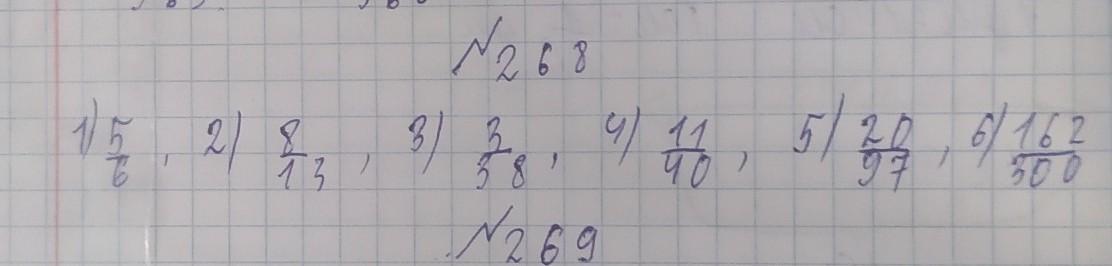 №268
1) 5/6, 2) 8/13, 3) 3/38, 4) 11/40, 5) 20/97, 6) 162/300
№269